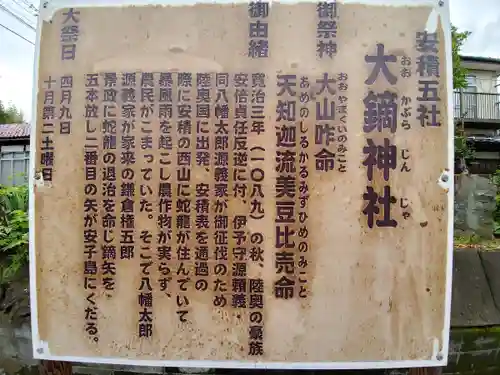 安積五社
大鏑神社
おお かぶら じん じゃ
御祭神
大山咋命
おおやまくいのみこと
天知迦流美豆比売命
あめのしるかるみずひめのみこと
御由緒
寛治三年（一〇八九）の秋、陸奥の豪族
安倍貞任反逆に付、伊予守源頼義・
同八幡太郎源義家が御征伐のため
陸奥国に出発、安積表を通過の
際に安積の西山に蛇龍が住んでいて
暴風雨を起こし農作物が実らず、
農民がこまっていた。そこで八幡太郎
源義家が家来の鎌倉権五郎
景政に蛇龍の退治を命じ鏑矢を
五本放し二番目の矢が安子島にくだる。
大祭日
四月九日
十月第二土曜日